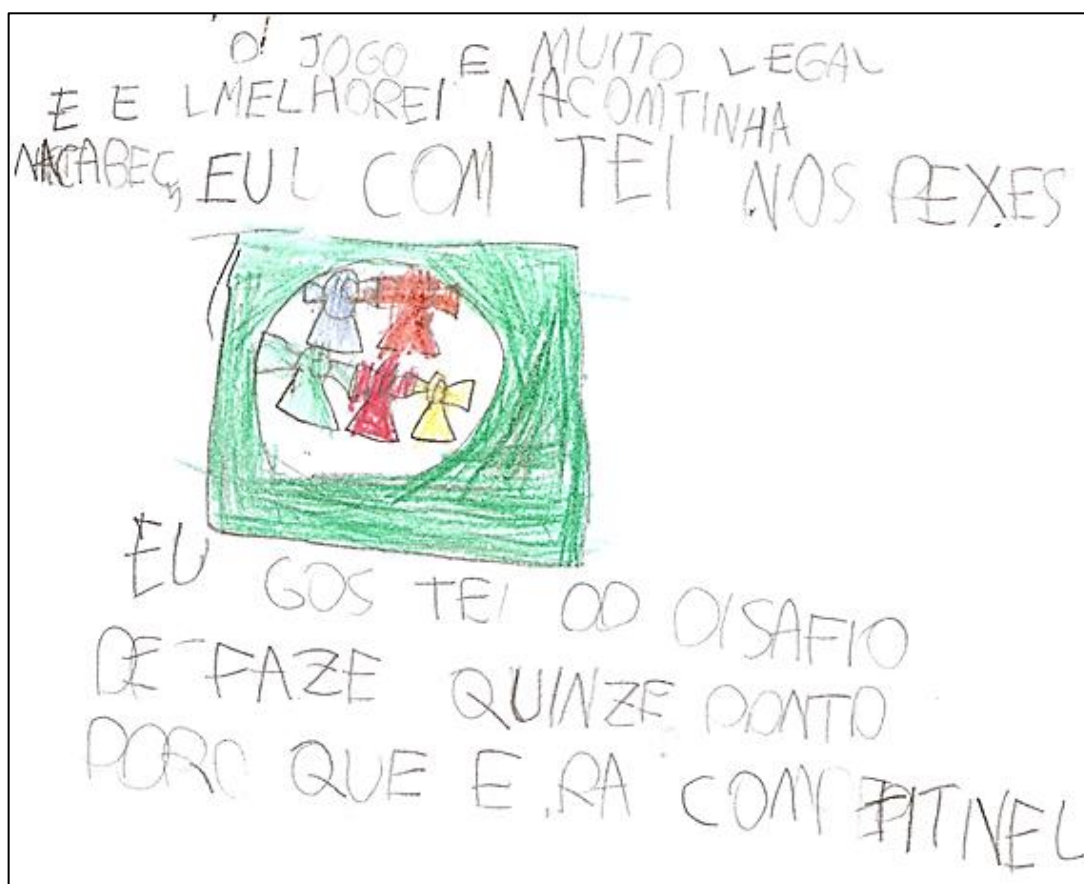 O JOGO E MUITO LEGAL
E E LMELHOREI NACOMTINHA
NACABEÇ, EUL COM TEI NOS PEXES
EU GOS TEI OD DISAFIO
DE FAZE QUINZE PONTO
PORC QUE E RA COMPETITIVEL